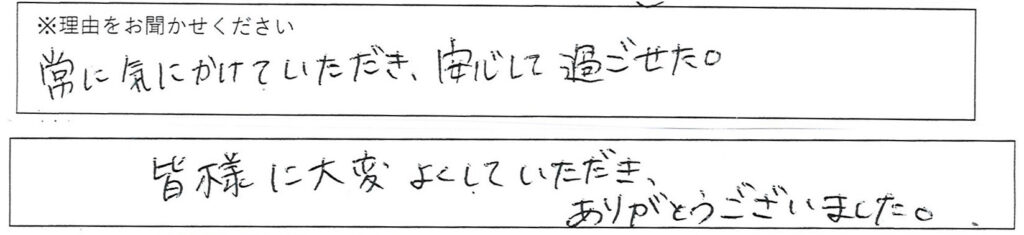 ※理由をお聞かせください
常に気にかけていただき、安心して過ごせた。
皆様に大変よくしていただき、
ありがとうございました。